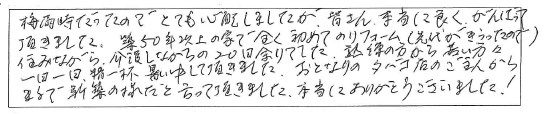 梅雨時だったのでとても心配しましたが、皆さん、本当に良く、がんばって
頂きました。築50年以上の家で全く初めてのリフォーム(先代がきらったので)
住みながら、介護しながらの20日余りでした。熟練の方から若い方々
一日一日、精一杯、暑い中して頂きました。おとなりのタバコ店のご主人から
まるで新築の様だと言って頂きました。本当にありがとうございました!